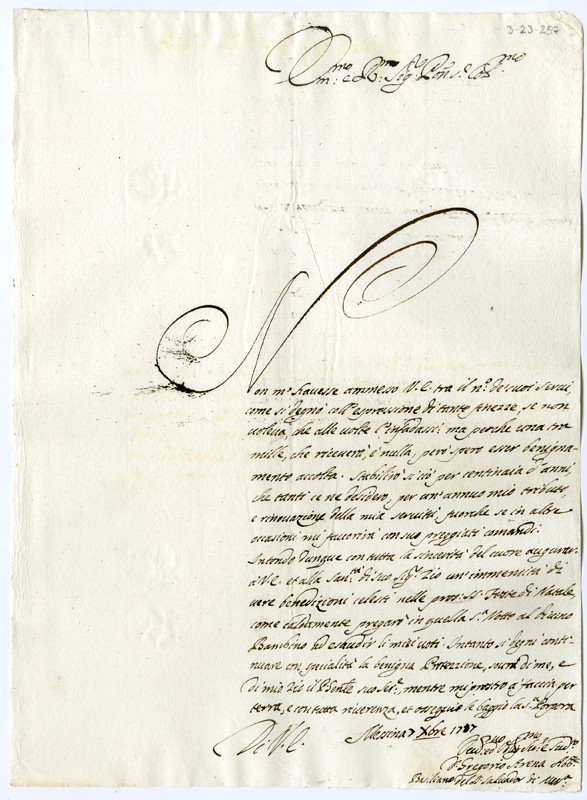 3-23-257
Em.mo e R.mo Sig.e P.on S. Col.mo
Non m'havesse ammesso V.E. tra il n.o de suoi servi,
come si degnò coll'espressione di tante finezze, se non
voleva, che alle volte l'infadassi; ma perche una tra
mille, che riceverà, è nulla, però spero esser benigna-
mente accolta. Stabilirò si ciò per centinaia d'anni,
che tanti ce ne desidero, per un'annuo mio tributo,
e rinovazione della mia servitù, fuorche se in altre
occasioni mi favorirà con suo preggiati comandi.
Intendo dunque con tutta la sincerità del cuore augurar
à V.E. et alla San.tà di suo Sig.r Zio un'immensità di
vere benedizioni celesti nelle pross.e S.e Feste di Natale,
come caldamente pregarò in quella S.a Notte al Divino
Bambino ad esaudir li miei voti. Intanto si degni conti-
nuare con specialità la benigna Protezzione, sovra di me, e
di mio Zio il suo Ser.e, mentre mi prostro à faccia per
terra, e con tutta riverenza, et ossequio le baggio la S.a Porpora
Di V.E. Messina 7 Xbre 1727
D. Gregorio Arena Abb.e
Basiliano del S. Salvador di